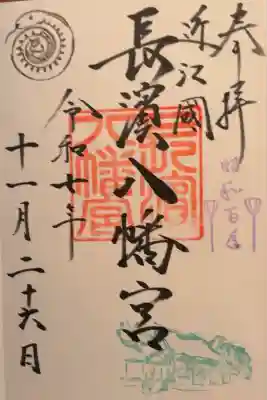 奉拝
昭和百年
近江國
長濱八幡宮
長濱八幡宮
令和七年
十一月二十六日